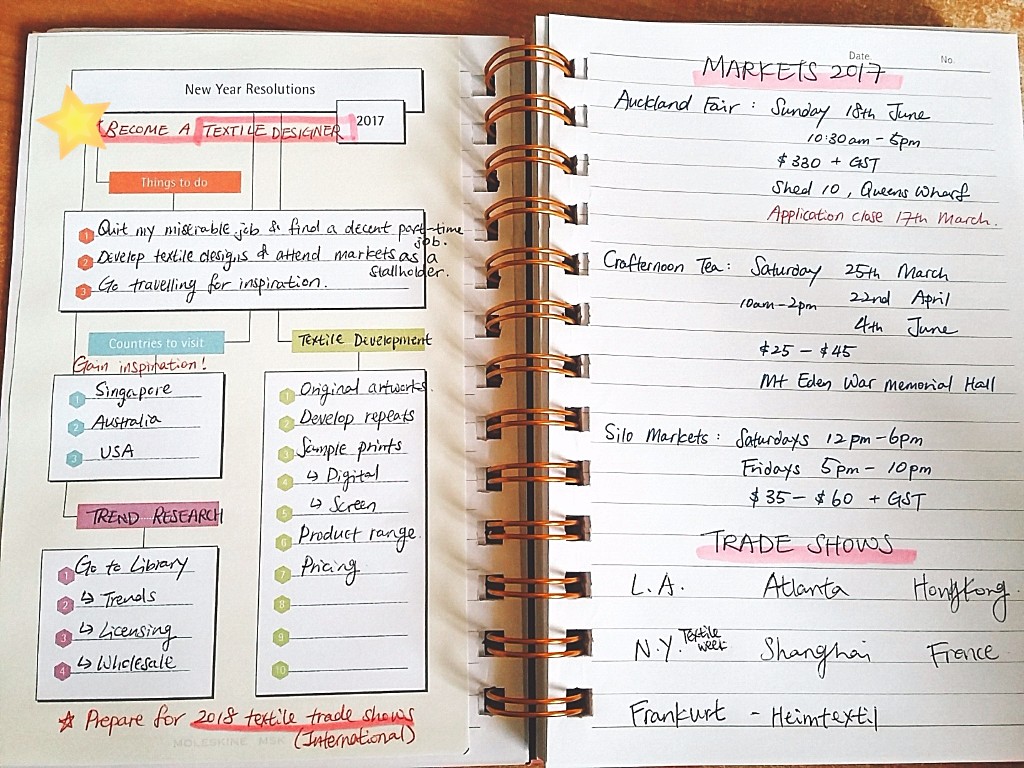 New Year Resolutions
2017
BECOME A TEXTILE DESIGNER
Things to do
1 Quit my miserable job & find a decent part-time job.
2 Develop textile designs & attend markets as a stallholder.
3 Go travelling for inspiration.
Countries to visit
Gain inspiration!
1 Singapore
2 Australia
3 USA
TREND RESEARCH
1 Go to Library
2 ↳ Trends
3 ↳ Licensing
4 ↳ Wholesale
Textile Development
1 Original artworks.
2 Develop repeats
3 Sample prints
4 ↳ Digital
5 ↳ Screen
6 Product range
7 Pricing
8
9
10
☆ Prepare for 2018 textile trade shows
(International)
MOLESKINE MSK
Date
No.
MARKETS 2017
Auckland Fair : Sunday 18th June
10:30am - 5pm
$330 + GST
Shed 10, Queens Wharf
Application close 17th March.
Crafternoon Tea : Saturday 25th March
10am-2pm 22nd April
4th June
$25 - $45
Mt Eden War memorial Hall
Silo Markets : Saturdays 12pm-6pm
Fridays 5pm - 10pm
$35 - $60 + GST
TRADE SHOWS
L.A. Atlanta HongKong
N.Y. Textile week Shanghai France
Frankurt - Heimtextil